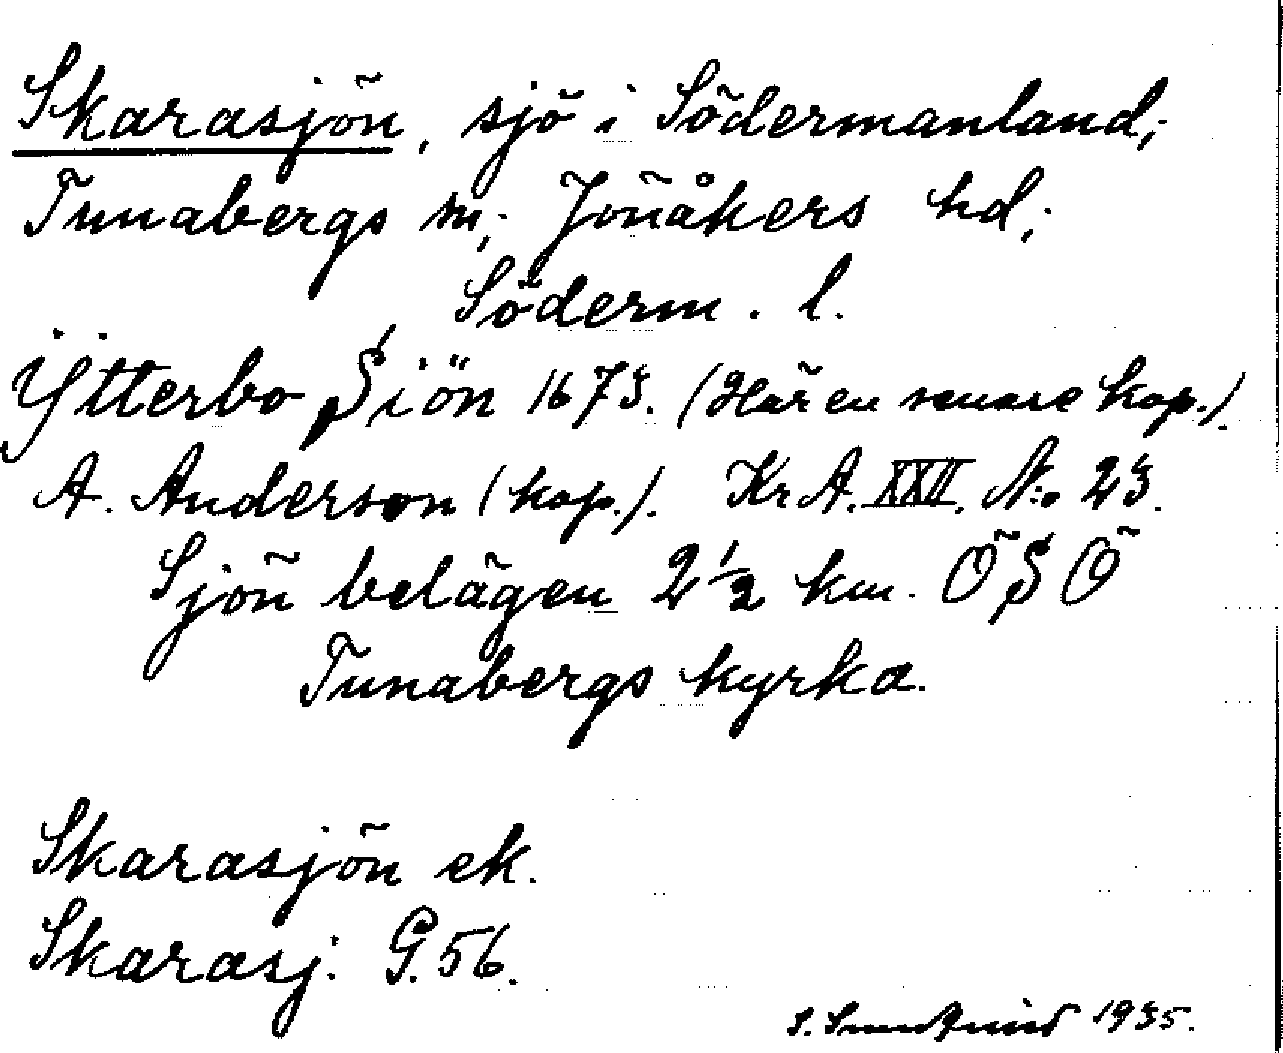 Skarasjön, sjö i Södermanland;
Tunabergs sn; Jönåkers hd;
Söderm. l.
Ytterbo Siön 1673. (Här en senare kop.).
A. Anderson (kop.). Kr A. XXII. N:o 23.
Sjön belägen 2 1/2 km. ÖSÖ
Tunabergs kyrka.
Skarasjön ek.
Skarasj. G. 56.
S. 1935.